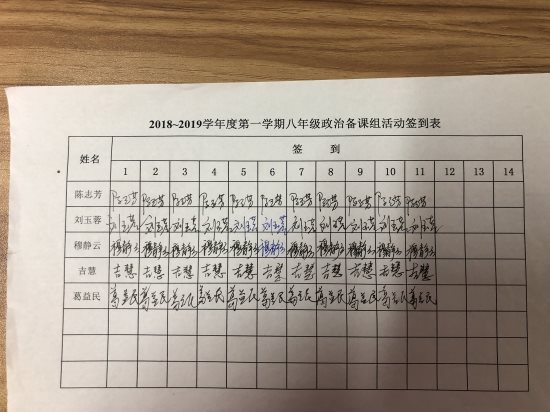 2018~2019学年度第一学期八年级政治备课组活动签到表
姓名 签 到
1 2 3 4 5 6 7 8 9 10 11 12 13 14
陈志芳 陈志芳 陈志芳 陈志芳 陈志芳 陈志芳 陈志芳 陈志芳 陈志芳 陈志芳 陈志芳 陈志芳
刘玉蓉 刘玉蓉 刘玉蓉 刘玉蓉 刘玉蓉 刘玉蓉 刘玉蓉 刘玉蓉 刘玉蓉 刘玉蓉 刘玉蓉 刘玉蓉
穆静云 穆静云 穆静云 穆静云 穆静云 穆静云 穆静云 穆静云 穆静云 穆静云 穆静云 穆静云
吉慧 吉慧 吉慧 吉慧 吉慧 吉慧 吉慧 吉慧 吉慧 吉慧 吉慧 吉慧
葛益民 葛益民 葛益民 葛益民 葛益民 葛益民 葛益民 葛益民 葛益民 葛益民 葛益民 葛益民